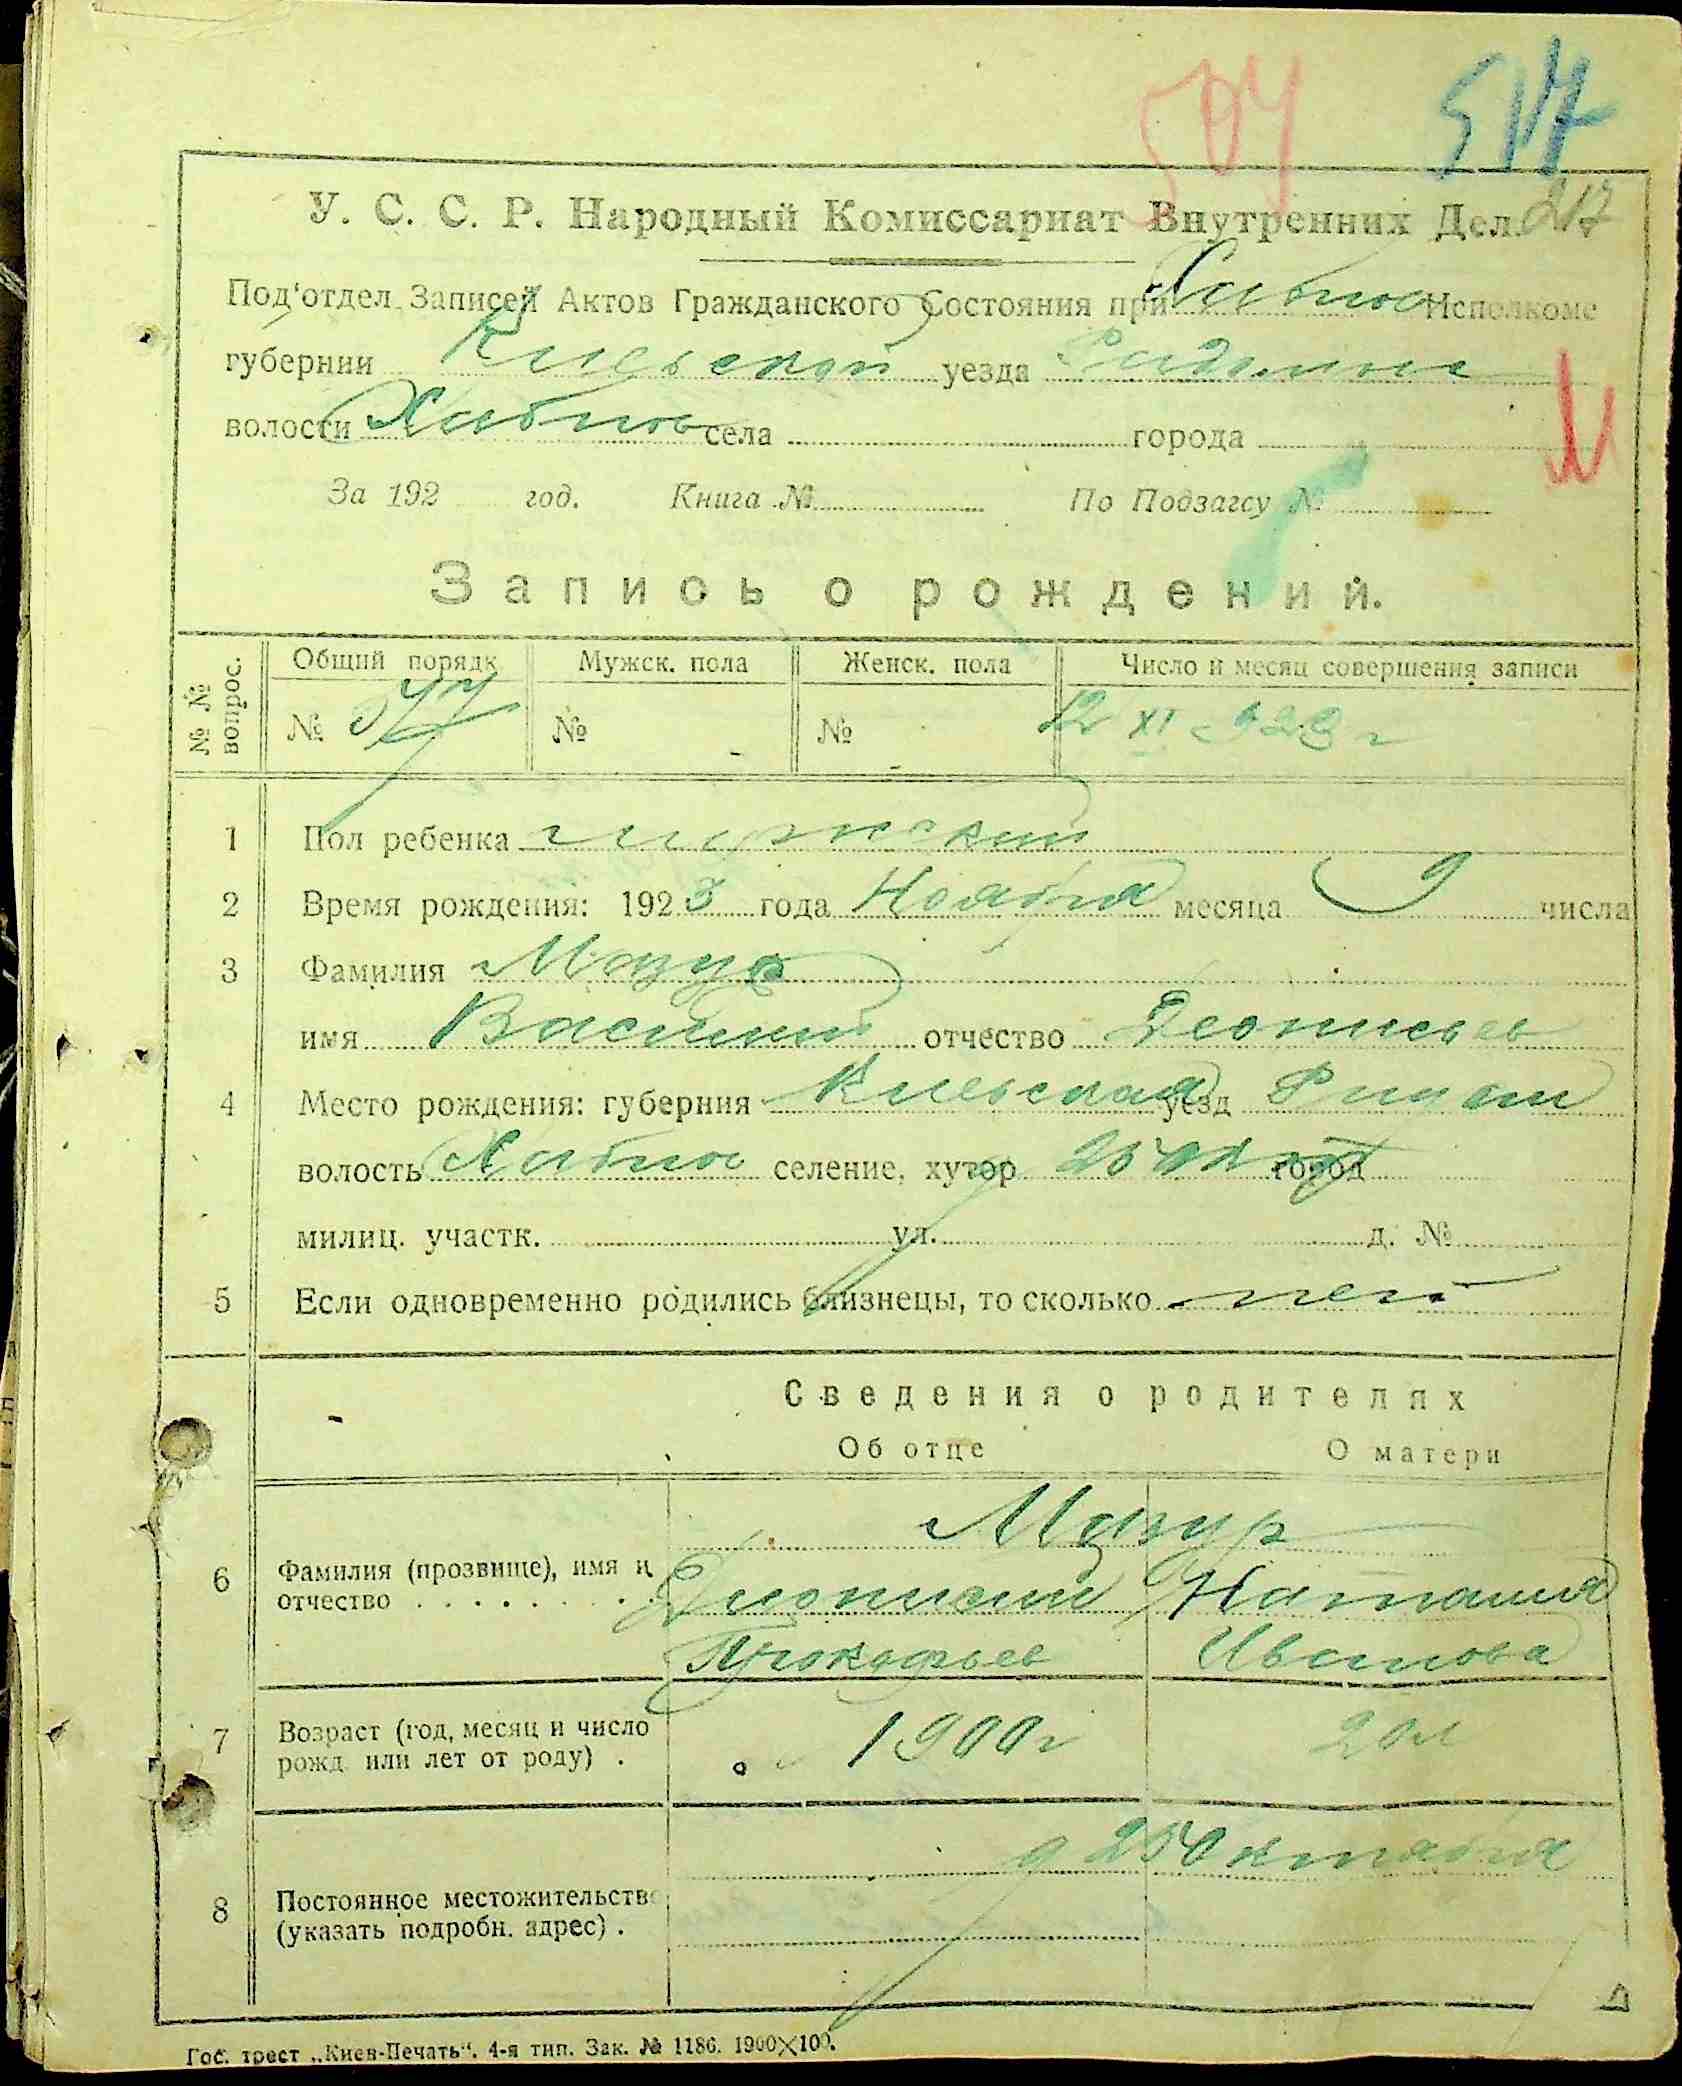 504 517
У. С. С. Р. Народный Комиссариат Внутренних Дел. 217
Под'отдел Записей Актов Гражданского Состояния при Хабно Исполкоме
губернии Киевской уезда
волости Хабнов села города
За 192 год. Книга № По Подзагсу №
Запись о рождении.
№ № вопрос. Общий порядк Мужск. пола Женск. пола Число и месяц совершения записи
№ № № 12 XI 923 г
1 Пол ребенка мужский
2 Время рождения: 1923 года Ноября месяца 9 числа
3 Фамилия Мазур
имя Василий отчество Деонисьев
4 Место рождения: губерния Киевская уезд
волость Хабно селение, хутор 25 Окт город
милиц. участк. ул. д. №
5 Если одновременно родились близнецы, то сколько нет
Сведения о родителях
Об отце О матери
Мазур
6 Фамилия (прозвище), имя и Дионисий Наталия
отчество Прокофьев Иванова
7 Возраст (год, месяц и число рожд. или лет от роду) . 1900 г 20 л
8 Постоянное местожительство (указать подробн. адрес) . 25 Октября
Гос. трест „Киев-Печать“. 4-я тип. Зак. № 1186. 1900×100.